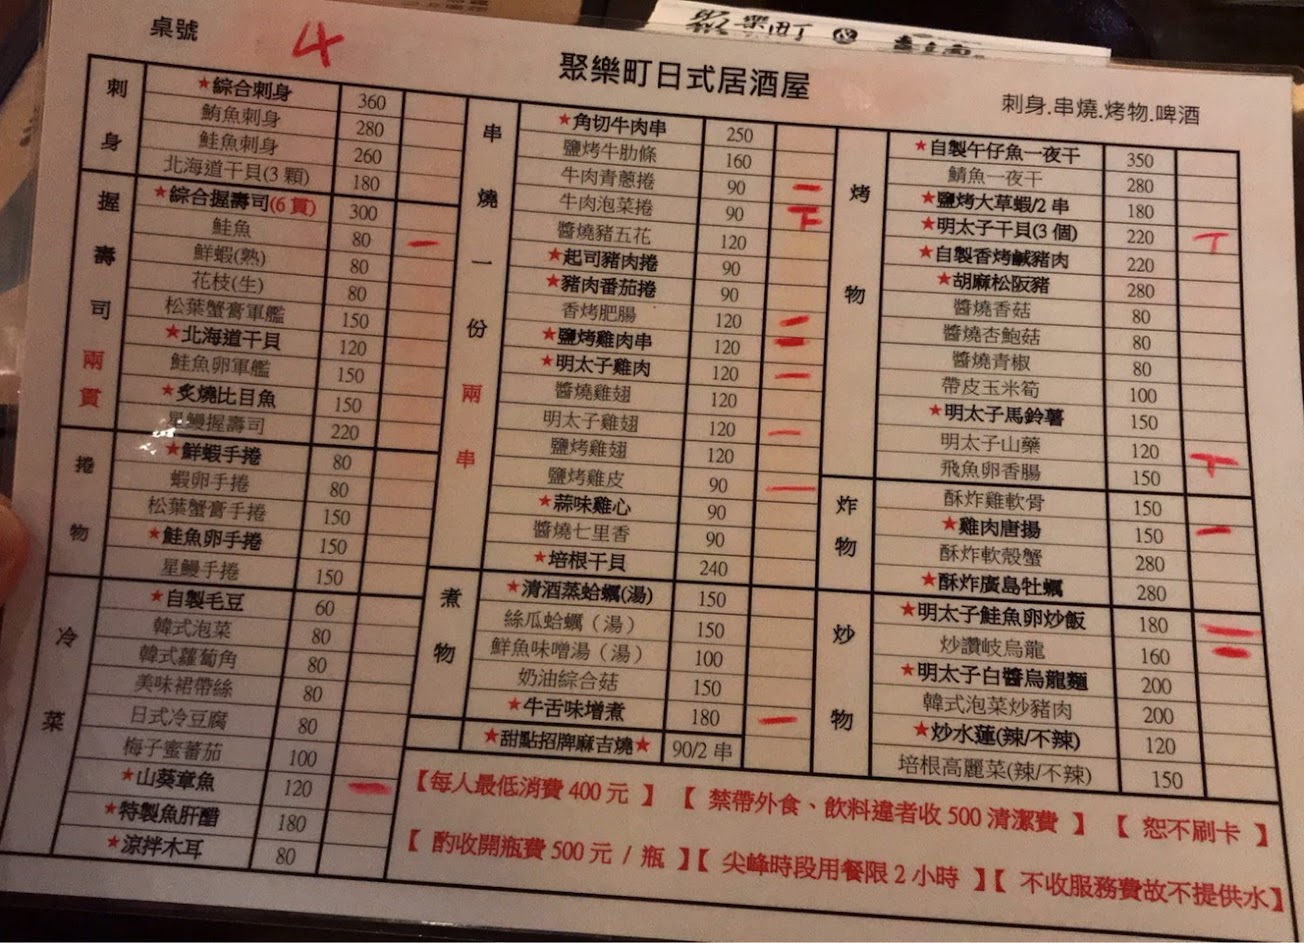 桌號 4
聚樂町日式居酒屋
刺身.串燒.烤物.啤酒
刺身
★綜合刺身 360
鮪魚刺身 280
鮭魚刺身 260
北海道干貝(3 顆) 180
握壽司 兩貫
★綜合握壽司(6 貫) 300
鮭魚 80 一
鮮蝦(熟) 80
花枝(生) 80
松葉蟹膏軍艦 150
★北海道干貝 120
鮭魚卵軍艦 150
★炙燒比目魚 150
星鰻握壽司 220
捲物
★鮮蝦手捲 80
蝦卵手捲 80
松葉蟹膏手捲 150
★鮭魚卵手捲 150
星鰻手捲 150
冷菜
★自製毛豆 60
韓式泡菜 80
韓式蘿蔔角 80
美味裙帶絲 80
日式冷豆腐 80
梅子蜜蕃茄 100
★山葵章魚 120 一
★特製魚肝醋 180
★涼拌木耳 80
串燒一份兩串
★角切牛肉串 250
鹽烤牛肋條 160
牛肉青蔥捲 90 一
牛肉泡菜捲 90 下
醬燒豬五花 120
★起司豬肉捲 90
★豬肉番茄捲 90
香烤肥腸 120 一
★鹽烤雞肉串 120 一
★明太子雞肉 120 一
醬燒雞翅 120
明太子雞翅 120 一
鹽烤雞翅 120
鹽烤雞皮 90 一
★蒜味雞心 90
醬燒七里香 90
★培根干貝 240
煮物
★清酒蒸蛤蠣(湯) 150
絲瓜蛤蠣（湯） 150
鮮魚味噌湯（湯） 100
奶油綜合菇 150
★牛舌味增煮 180 一
★甜點招牌麻吉燒★ 90/2 串
烤物
★自製午仔魚一夜干 350
鯖魚一夜干 280
★鹽烤大草蝦/2 串 180
★明太子干貝(3 個) 220 T
★自製香烤鹹豬肉 220
★胡麻松阪豬 280
醬燒香菇 80
醬燒杏鮑菇 80
醬燒青椒 80
帶皮玉米筍 100
★明太子馬鈴薯 150
明太子山藥 120
飛魚卵香腸 150 T
炸物
酥炸雞軟骨 150
★雞肉唐揚 150 一
酥炸軟殼蟹 280
★酥炸廣島牡蠣 280
炒物
★明太子鮭魚卵炒飯 180 一
炒讚岐烏龍 160 一
★明太子白醬烏龍麵 200
韓式泡菜炒豬肉 200
★炒水蓮(辣/不辣) 120
培根高麗菜(辣/不辣) 150
【每人最低消費 400 元 】【 禁帶外食、飲料違者收 500 清潔費 】【 恕不刷卡 】
【 酌收開瓶費 500 元 / 瓶 】【 尖峰時段用餐限 2 小時 】【 不收服務費故不提供水】